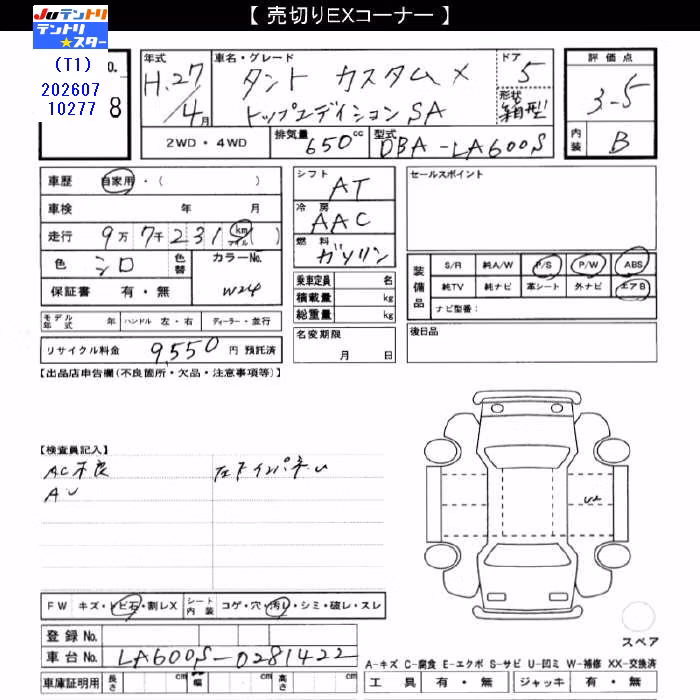 【 売切りEXコーナー 】
JUテントリ
テントリ★スター
(T1)
202607
10277
8
年式
H.27/4月
車名・グレード
タント カスタム X
トップエディション SA
ドア
5
形状
箱型
評価点
3-5
内装
B
2WD・4WD
排気量
650cc
型式
DBA-LA600S
車歴 自家用・( )
車検 年 月
走行 9万7千231 km マイル ( )
色 シロ
色替
カラーNo.
W24
保証書 有・無
モデル年式 年 ハンドル 左・右 ディーラー・並行
リサイクル料金 9,550 円 預託済
シフト
AT
冷房
AAC
燃料
ガソリン
乗車定員 名
積載量 kg
総重量 kg
名変期限
月 日
セールスポイント
装備品
S/R 純A/W P/S P/W ABS
純TV 純ナビ 革シート 外ナビ エアB
ナビ型番：
後日品
【出品店申告欄(不良箇所・欠品・注意事項等)】
【検査員記入】
AC不良
AU
U2
FW キズ・トビ石・割レX
シート内装 コゲ・穴・汚レ・シミ・破レ・スレ
登録No.
車台No. LA600S-0281422
車庫証明用 長さ cm 幅 cm 高さ cm
スペア
A-キズ C-腐食 E-エクボ S-サビ U-凹ミ W-補修 XX-交換済
工具 有・無 ジャッキ 有・無